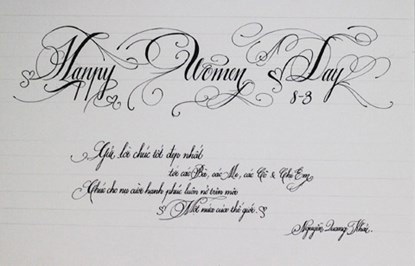 Happy Women Day
8-3
Gửi lời chúc tốt đẹp nhất
tới các Bà, các Mẹ, các Cô & Chị Em
Chúc cho nụ cười hạnh phúc luôn nở trên môi
Một nửa của thế giới.
Nguyễn Quang Khải